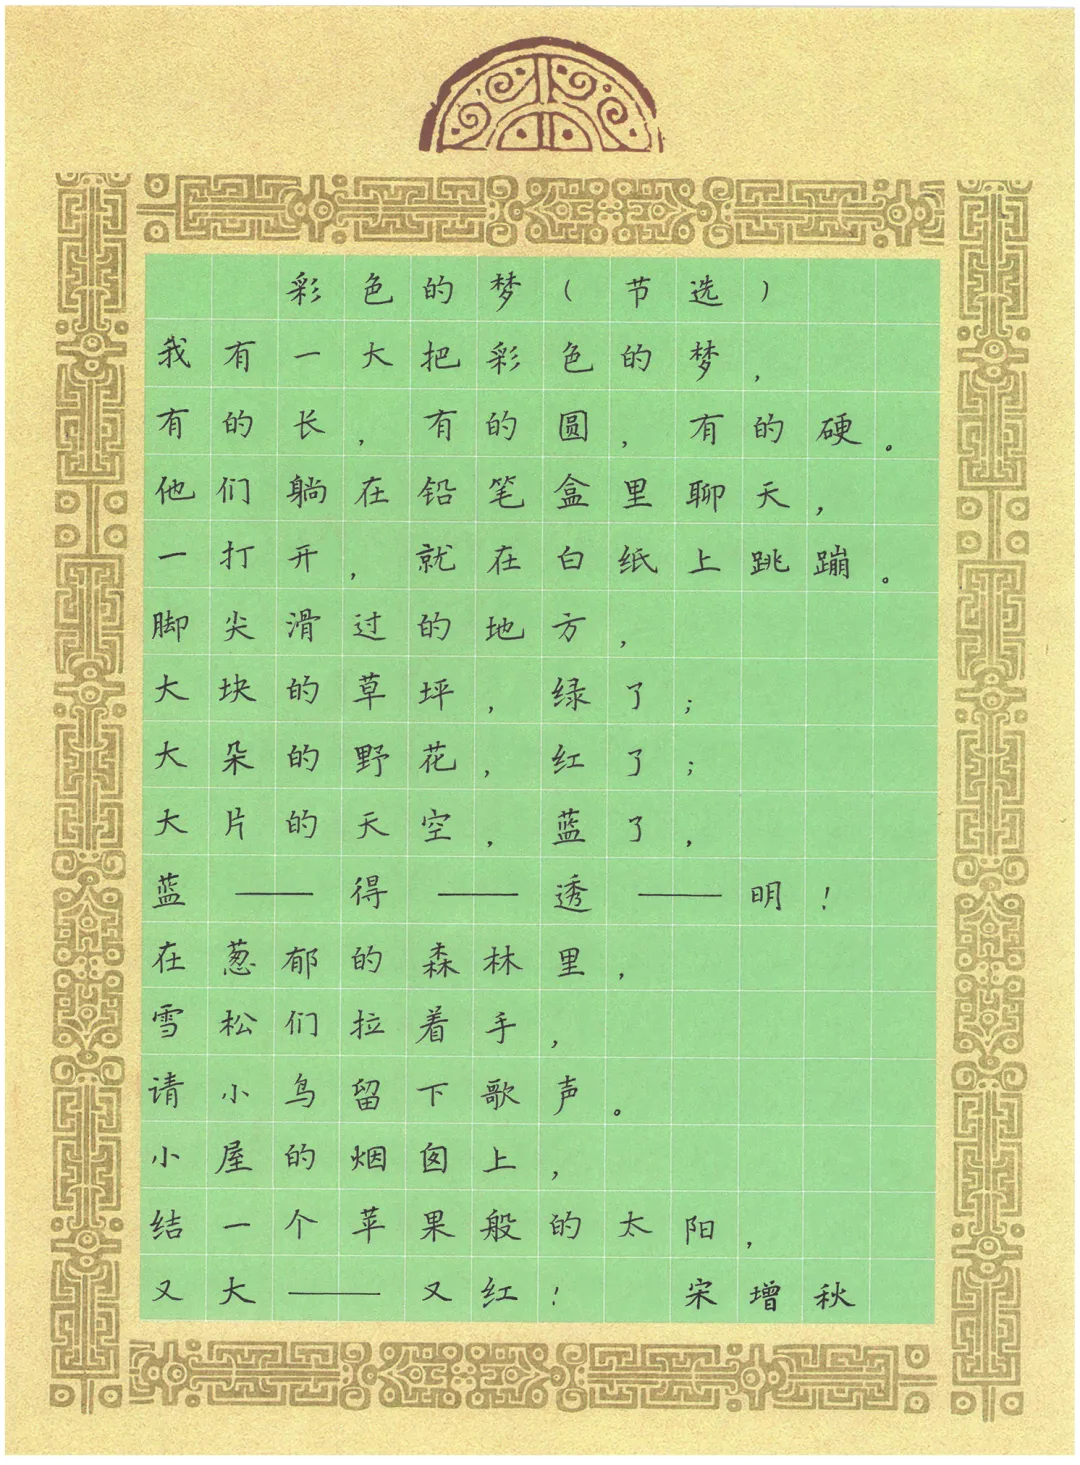 彩色的梦(节选)
我有一大把彩色的梦,
有的长,有的圆,有的硬。
他们躺在铅笔盒里聊天,
一打开,就在白纸上跳蹦。
脚尖滑过的地方,
大块的草坪,绿了;
大朵的野花,红了;
大片的天空,蓝了,
蓝——得——透——明!
在葱郁的森林里,
雪松们拉着手,
请小鸟留下歌声。
小屋的烟囱上,
结一个苹果般的太阳,
又大——又红! 宋增秋